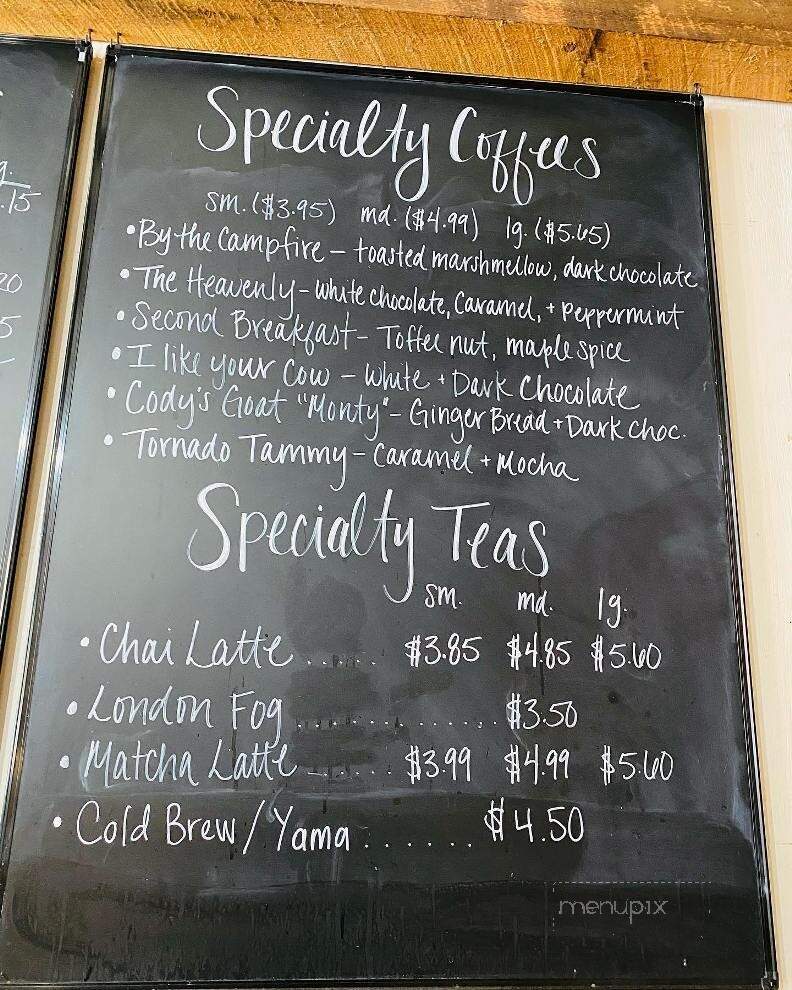 g.
.15
20
5
Specialty Coffees
sm. ($3.95) md. ($4.99) lg. ($5.65)
• By the Campfire – toasted marshmellow, dark chocolate
• The Heavenly – white chocolate, Caramel, + Peppermint
• Second Breakfast – Toffee nut, maple spice
• I like your Cow – White + Dark Chocolate
• Cody's Goat "Monty" – Ginger Bread + Dark choc.
• Tornado Tammy – Caramel + Mocha
Specialty Teas
sm. md. lg.
• Chai Latte ...... $3.85 $4.85 $5.60
• London Fog .............. $3.50
• Matcha Latte ...... $3.99 $4.99 $5.60
• Cold Brew / Yama ...... $4.50
menupix